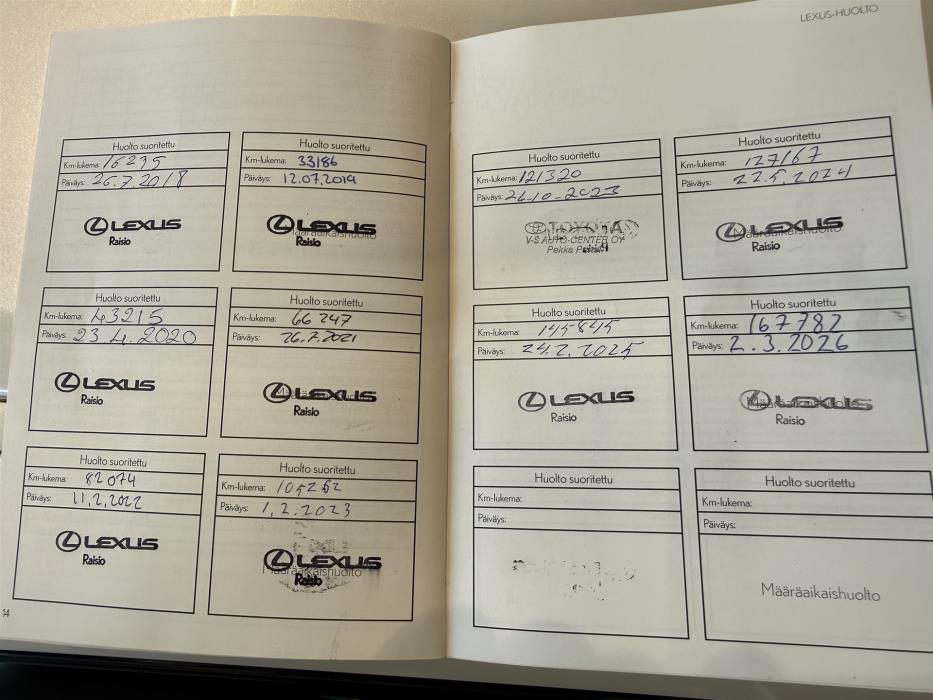 LEXUS-HUOLTO
Huolto suoritettu
Km-lukema: 16295
Päiväys: 26.7.2018
LEXUS
Raisio
Huolto suoritettu
Km-lukema: 33186
Päiväys: 12.07.2019
LEXUS
Määräaikaishuolto
Raisio
Huolto suoritettu
Km-lukema: 43215
Päiväys: 23.4.2020
LEXUS
Raisio
Huolto suoritettu
Km-lukema: 66247
Päiväys: 26.7.2021
LEXUS
Raisio
Huolto suoritettu
Km-lukema: 82074
Päiväys: 11.2.2022
LEXUS
Raisio
Huolto suoritettu
Km-lukema: 105262
Päiväys: 1.2.2023
LEXUS
Määräaikaishuolto
Raisio
14
Huolto suoritettu
Km-lukema: 121320
Päiväys: 24.10.2023
TOYOTA
V-S AUTO-CENTER OY
Pekka
Huolto suoritettu
Km-lukema: 127167
Päiväys: 22.5.2024
LEXUS
Määräaikaishuolto
Raisio
Huolto suoritettu
Km-lukema: 145845
Päiväys: 24.2.2025
LEXUS
Raisio
Huolto suoritettu
Km-lukema: 167782
Päiväys: 2.3.2026
LEXUS
Määräaikaishuolto
Raisio
Huolto suoritettu
Km-lukema:
Päiväys:
Huolto suoritettu
Km-lukema:
Päiväys:
Määräaikaishuolto